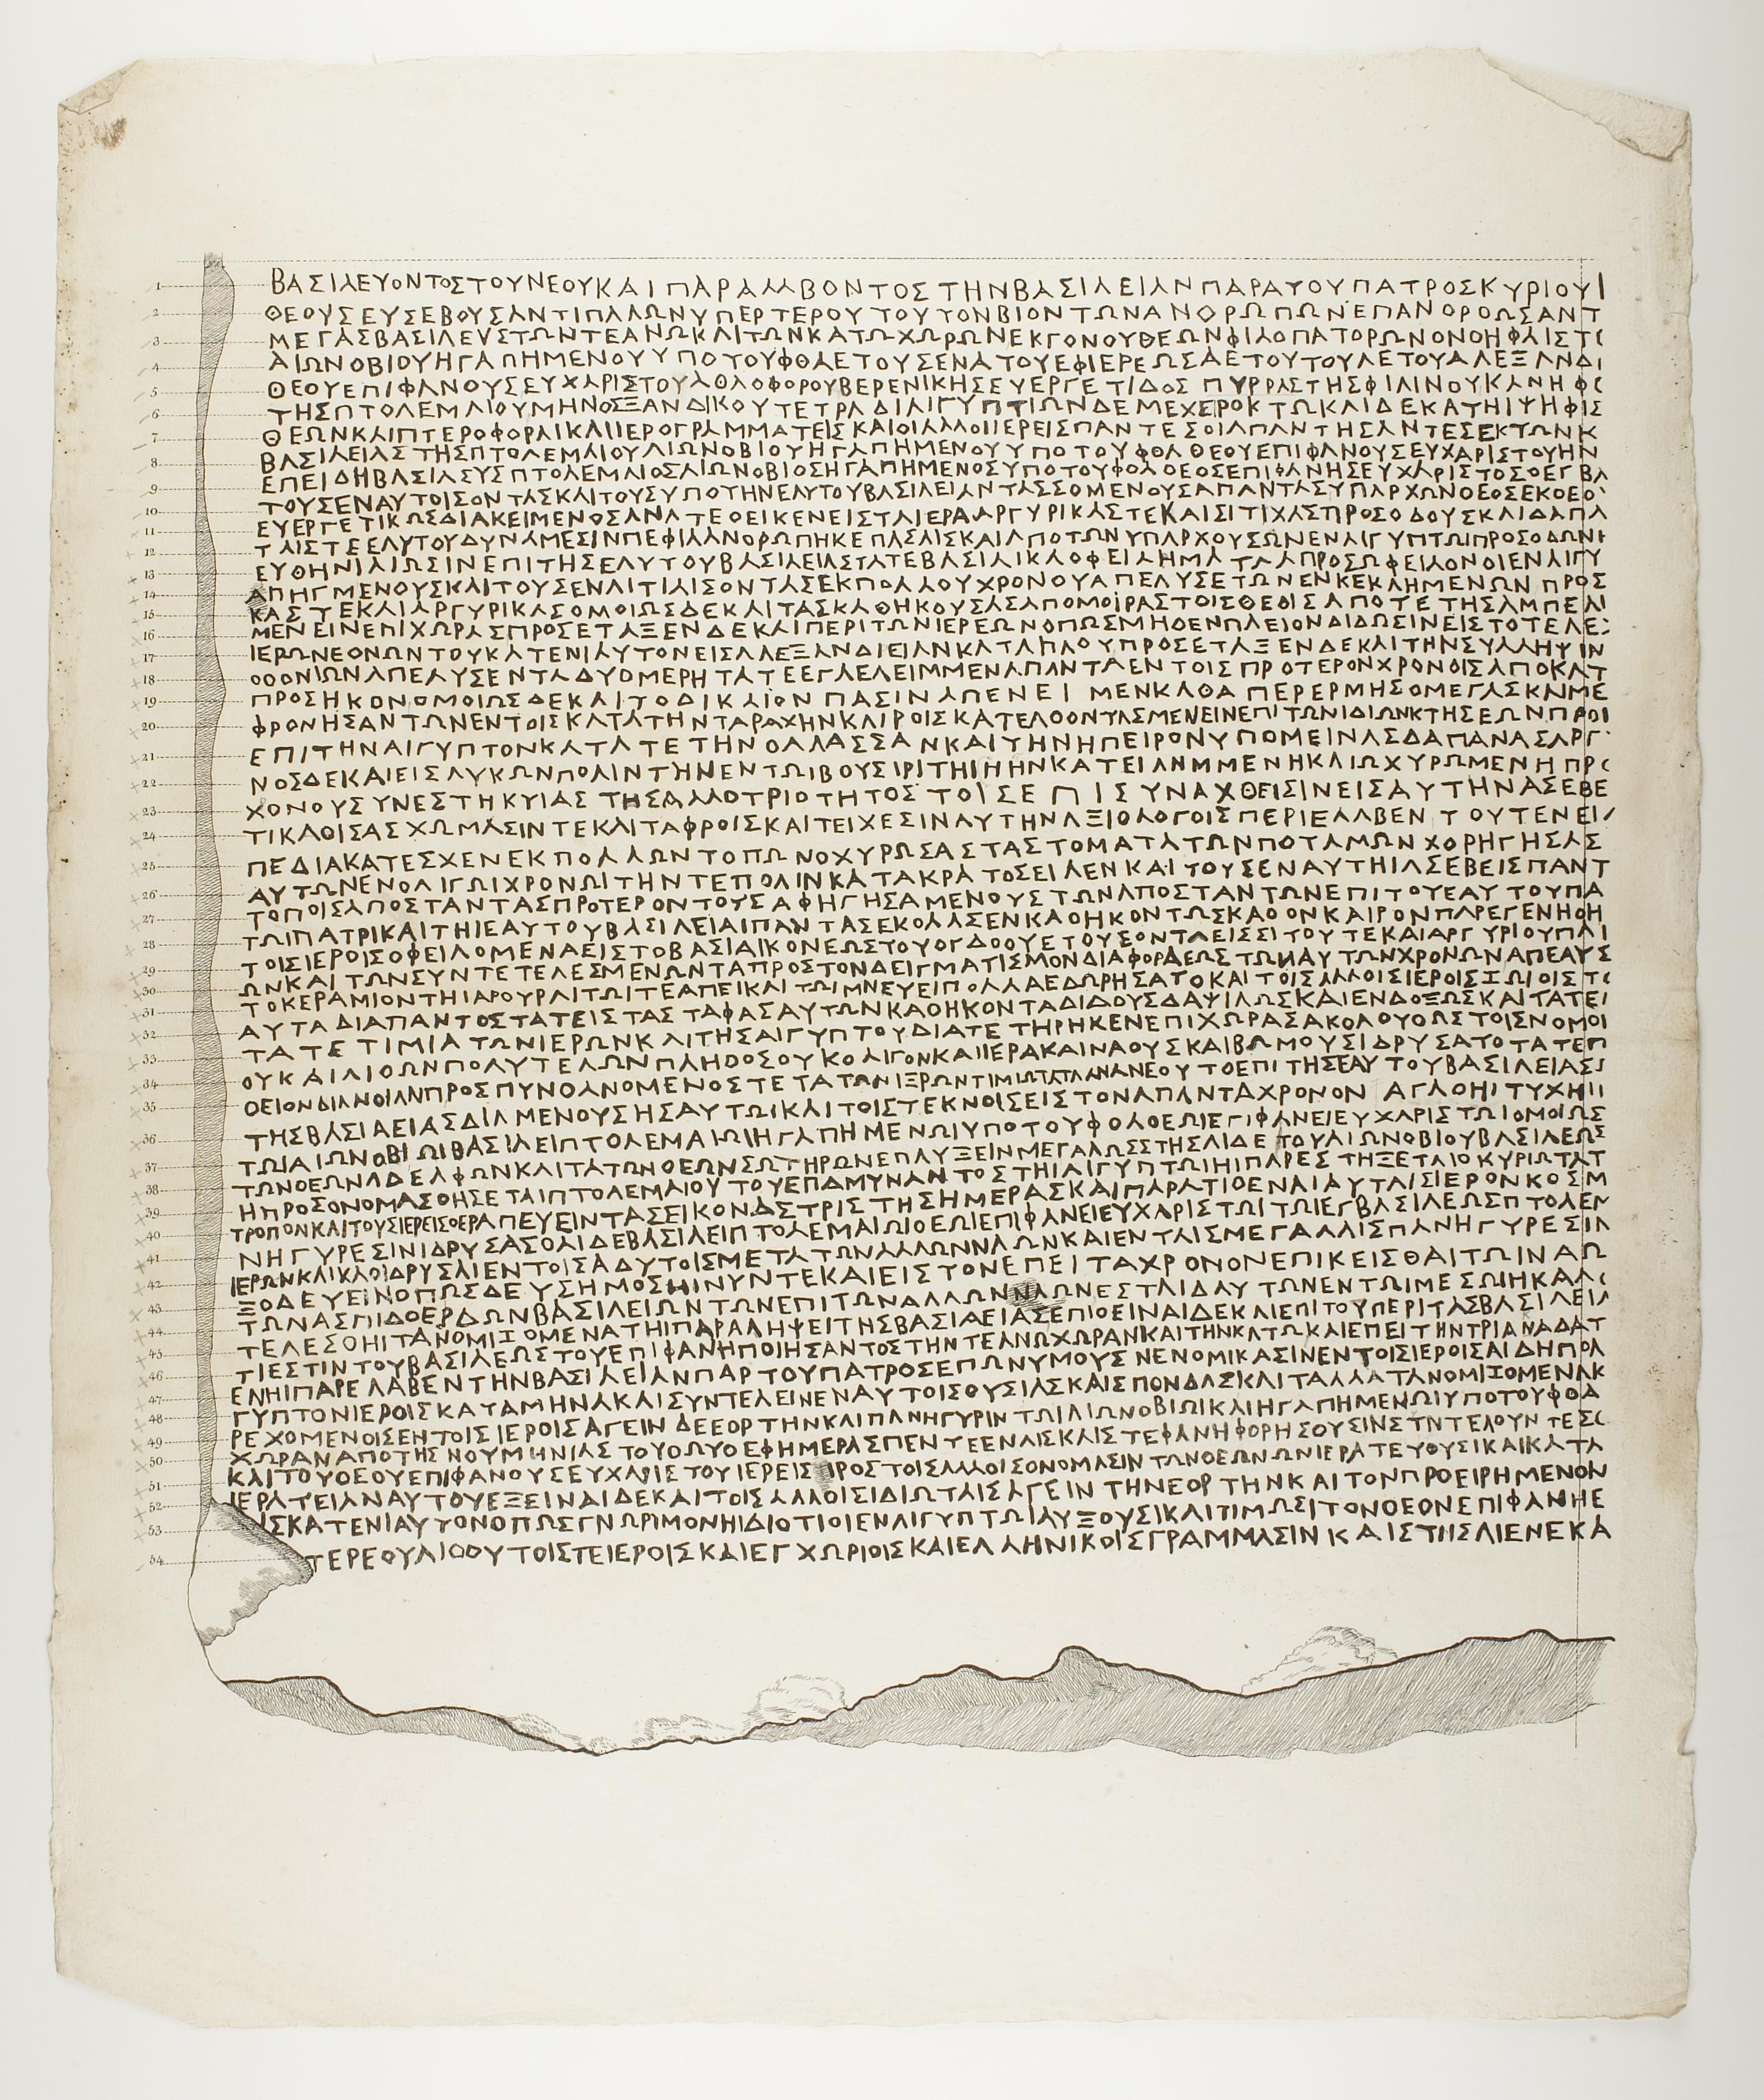 1 ΒΑΣΙΛΕΥΟΝΤΟΣΤΟΥΝΕΟΥΚΑΙΠΑΡΑΛΑΒΟΝΤΟΣΤΗΝΒΑΣΙΛΕΙΑΝΠΑΡΑΤΟΥΠΑΤΡΟΣΚΥΡΙΟΥ
2 ΘΕΟΥΣΕΥΣΕΒΟΥΣΑΝΤΙΠΑΛΩΝΥΠΕΡΤΕΡΟΥΤΟΥΤΟΝΒΙΟΝΤΩΝΑΝΘΡΩΠΩΝΕΠΑΝΟΡΘΩΣΑΝΤ
3 ΜΕΓΑΣΒΑΣΙΛΕΥΣΤΩΝΤΕΑΝΩΚΑΙΤΩΝΚΑΤΩΧΩΡΩΝΕΚΓΟΝΟΥΘΕΩΝΦΙΛΟΠΑΤΟΡΩΝΟΝΟΗΦΑΙΣΤ
4 ΑΙΩΝΟΒΙΟΥΗΓΑΠΗΜΕΝΟΥΥΠΟΤΟΥΦΘΑΕΤΟΥΣΕΝΑΤΟΥΕΦΙΕΡΕΩΣΑΕΤΟΥΤΟΥΑΕΤΟΥΑΛΕΞΑΝΔ
5 ΘΕΟΥΕΠΙΦΑΝΟΥΣΕΥΧΑΡΙΣΤΟΥΑΘΛΟΦΟΡΟΥΒΕΡΕΝΙΚΗΣΕΥΕΡΓΕΤΙΔΟΣΠΥΡΡΑΣΤΗΣΦΙΛΙΝΟΥΚΑΝΗΦ
6 ΤΗΣΠΤΟΛΕΜΑΙΟΥΜΗΝΟΣΞΑΝΔΙΚΟΥΤΕΤΡΑΔΙΑΙΓΥΠΤΙΩΝΔΕΜΕΧΕΙΡΟΚΤΩΚΑΙΔΕΚΑΤΗΙΨΗΦΙΣ
7 ΘΕΩΝΚΑΙΠΤΕΡΟΦΟΡΑΙΚΑΙΙΕΡΟΓΡΑΜΜΑΤΕΙΣΚΑΙΟΙΑΛΛΟΙΙΕΡΕΙΣΠΑΝΤΕΣΟΙΑΠΑΝΤΗΣΑΝΤΕΣΕΚΤΩΝΚ
8 ΒΑΣΙΛΕΙΑΣΤΗΣΠΤΟΛΕΜΑΙΟΥΑΙΩΝΟΒΙΟΥΗΓΑΠΗΜΕΝΟΥΥΠΟΤΟΥΦΘΑΘΕΟΥΕΠΙΦΑΝΟΥΣΕΥΧΑΡΙΣΤΟΥΗΝ
9 ΕΠΕΙΔΗΒΑΣΙΛΕΥΣΠΤΟΛΕΜΑΙΟΣΑΙΩΝΟΒΙΟΣΗΓΑΠΗΜΕΝΟΣΥΠΟΤΟΥΦΘΑΘΕΟΣΕΠΙΦΑΝΗΣΕΥΧΑΡΙΣΤΟΣΟΕΓΒΑ
10 ΤΟΥΣΕΝΑΥΤΟΙΣΟΝΤΑΣΚΑΙΤΟΥΣΥΠΟΤΗΝΕΑΥΤΟΥΒΑΣΙΛΕΙΑΝΤΑΣΣΟΜΕΝΟΥΣΑΠΑΝΤΑΣΥΠΑΡΧΩΝΘΕΟΣΕΚΘΕΟ
11 ΕΥΕΡΓΕΤΙΚΩΣΔΙΑΚΕΙΜΕΝΟΣΑΝΑΤΕΘΕΙΚΕΝΕΙΣΤΑΙΕΡΑΑΡΓΥΡΙΚΑΣΤΕΚΑΙΣΙΤΙΚΑΣΠΡΟΣΟΔΟΥΣΚΑΙΔΑΠΑ
12 ΤΑΙΣΤΕΕΑΥΤΟΥΔΥΝΑΜΕΣΙΝΠΕΦΙΛΑΝΘΡΩΠΗΚΕΠΑΣΑΙΣΚΑΙΑΠΟΤΩΝΥΠΑΡΧΟΥΣΩΝΕΝΑΙΓΥΠΤΩΙΠΡΟΣΟΔΩΝ
13 ΕΥΘΗΝΙΑΙΩΣΙΝΕΠΙΤΗΣΕΑΥΤΟΥΒΑΣΙΛΕΙΑΣΤΑΤΕΒΑΣΙΛΙΚΑΟΦΕΙΛΗΜΑΤΑΑΠΡΟΣΩΦΕΙΛΟΝΟΙΕΝΑΙΓΥ
14 ΑΠΗΓΜΕΝΟΥΣΚΑΙΤΟΥΣΕΝΑΙΤΙΑΙΣΟΝΤΑΣΕΚΠΟΛΛΟΥΧΡΟΝΟΥΑΠΕΛΥΣΕΤΩΝΕΝΚΕΚΛΗΜΕΝΩΝΠΡΟΣ
15 ΚΑΣΤΕΚΑΙΑΡΓΥΡΙΚΑΣΟΜΟΙΩΣΔΕΚΑΙΤΑΣΚΑΘΗΚΟΥΣΑΣΑΠΟΜΟΙΡΑΣΤΟΙΣΘΕΟΙΣΑΠΟΤΕΤΗΣΑΜΠΕΛΙ
16 ΜΕΝΕΙΝΕΠΙΧΩΡΑΣΠΡΟΣΕΤΑΞΕΝΔΕΚΑΙΠΕΡΙΤΩΝΙΕΡΕΩΝΟΠΩΣΜΗΘΕΝΠΛΕΙΟΝΔΙΔΩΣΙΝΕΙΣΤΟΤΕΛΕΣ
17 ΙΕΡΩΝΕΘΝΩΝΤΟΥΚΑΤΕΝΙΑΥΤΟΝΕΙΣΑΛΕΞΑΝΔΡΕΙΑΝΚΑΤΑΠΛΟΥΠΡΟΣΕΤΑΞΕΝΔΕΚΑΙΤΗΝΣΥΛΛΗΨΙΝ
18 ΟΘΟΝΙΩΝΑΠΕΛΥΣΕΝΤΑΔΥΟΜΕΡΗΤΑΤΕΕΓΛΕΛΕΙΜΜΕΝΑΠΑΝΤΑΕΝΤΟΙΣΠΡΟΤΕΡΟΝΧΡΟΝΟΙΣΑΠΟΚΑΤ
19 ΠΡΟΣΗΚΟΝΟΜΟΙΩΣΔΕΚΑΙΤΟΔΙΚΑΙΟΝΠΑΣΙΝΑΠΕΝΕΙΜΕΝΚΑΘΑΠΕΡΕΡΜΗΣΟΜΕΓΑΣΚΑΙΜΕ
20 ΦΡΟΝΗΣΑΝΤΩΝΕΝΤΟΙΣΚΑΤΑΤΗΝΤΑΡΑΧΗΝΚΑΙΡΟΙΣΚΑΤΕΛΘΟΝΤΑΣΜΕΝΕΙΝΕΠΙΤΩΝΙΔΙΩΝΚΤΗΣΕΩΝΠΡΟΙ
21 ΕΠΙΤΗΝΑΙΓΥΠΤΟΝΚΑΤΑΤΕΤΗΝΘΑΛΑΣΣΑΝΚΑΙΤΗΝΗΠΕΙΡΟΝΥΠΟΜΕΙΝΑΣΔΑΠΑΝΑΣΑΡΓ
22 ΝΟΣΔΕΚΑΙΕΙΣΛΥΚΩΝΠΟΛΙΝΤΗΝΕΝΤΩΙΒΟΥΣΙΡΙΤΗΙΗΗΝΚΑΤΕΙΛΗΜΜΕΝΗΚΑΙΩΧΥΡΩΜΕΝΗΠΡ
23 ΧΟΝΟΥΣΥΝΕΣΤΗΚΥΙΑΣΤΗΣΑΛΛΟΤΡΙΟΤΗΤΟΣΤΟΙΣΕΠΙΣΥΝΑΧΘΕΙΣΙΝΕΙΣΑΥΤΗΝΑΣΕΒΕ
24 ΤΙΚΑΟΙΣΑΣΧΩΜΑΣΙΝΤΕΚΑΙΤΑΦΡΟΙΣΚΑΙΤΕΙΧΕΣΙΝΑΥΤΗΝΑΞΙΟΛΟΓΟΙΣΠΕΡΙΕΛΑΒΕΝΤΟΥΤΕΝΕΙ
25 ΠΕΔΙΑΚΑΤΕΣΧΕΝΕΚΠΟΛΛΩΝΤΟΠΩΝΟΧΥΡΩΣΑΣΤΑΣΤΟΜΑΤΑΤΩΝΠΟΤΑΜΩΝΧΟΡΗΓΗΣΑΣ
26 ΑΥΤΩΝΕΝΟΛΙΓΩΙΧΡΟΝΩΙΤΗΝΤΕΠΟΛΙΝΚΑΤΑΚΡΑΤΟΣΕΙΛΕΝΚΑΙΤΟΥΣΕΝΑΥΤΗΙΑΣΕΒΕΙΣΠΑΝΤ
27 ΤΟΠΟΙΣΑΠΟΣΤΑΝΤΑΣΠΡΟΤΕΡΟΝΤΟΥΣΑΦΗΓΗΣΑΜΕΝΟΥΣΤΩΝΑΠΟΣΤΑΝΤΩΝΕΠΙΤΟΥΕΑΥΤΟΥΠΑ
28 ΤΩΙΠΑΤΡΙΚΑΙΤΗΙΕΑΥΤΟΥΒΑΣΙΛΕΙΑΙΠΑΝΤΑΣΕΚΟΛΑΣΕΝΚΑΘΗΚΟΝΤΩΣΚΑΘΟΝΚΑΙΡΟΝΠΑΡΕΓΕΝΗΘΗ
29 ΤΟΙΣΙΕΡΟΙΣΟΦΕΙΛΟΜΕΝΑΕΙΣΤΟΒΑΣΙΛΙΚΟΝΕΩΣΤΟΥΟΓΔΟΟΥΕΤΟΥΣΟΝΤΑΕΙΣΣΙΤΟΥΤΕΚΑΙΑΡΓΥΡΙΟΥΠΛΙ
30 ΩΝΚΑΙΤΩΝΣΥΝΤΕΤΕΛΕΣΜΕΝΩΝΤΑΠΡΟΣΤΟΝΔΕΙΓΜΑΤΙΣΜΟΝΔΙΑΦΟΡΑΕΩΣΤΩΝΑΥΤΩΝΧΡΟΝΩΝΑΠΕΛΥΣ
31 ΤΟΚΕΡΑΜΙΟΝΤΗΙΑΡΟΥΡΑΙΤΩΙΤΕΑΠΕΙΚΑΙΤΩΙΜΝΕΥΕΙΠΟΛΛΑΕΔΩΡΗΣΑΤΟΚΑΙΤΟΙΣΑΛΛΟΙΣΙΕΡΟΙΣΖΩΙΟΙΣΤ
32 ΑΥΤΑΔΙΑΠΑΝΤΟΣΤΑΤΕΙΣΤΑΣΤΑΦΑΣΑΥΤΩΝΚΑΘΗΚΟΝΤΑΔΙΔΟΥΣΔΑΨΙΛΩΣΚΑΙΕΝΔΟΞΩΣΚΑΙΤΑΤΕ
33 ΤΑΤΕΤΙΜΙΑΤΩΝΙΕΡΩΝΚΑΙΤΗΣΑΙΓΥΠΤΟΥΔΙΑΤΕΤΗΡΗΚΕΝΕΠΙΧΩΡΑΣΑΚΟΛΟΥΘΩΣΤΟΙΣΝΟΜΟΙ
34 ΟΥΚΑΙΛΙΘΩΝΠΟΛΥΤΕΛΩΝΠΛΗΘΟΣΟΥΚΟΛΙΓΟΝΚΑΙΙΕΡΑΚΑΙΝΑΟΥΣΚΑΙΒΩΜΟΥΣΙΔΡΥΣΑΤΟΤΑΤΕΠ
35 ΘΕΙΟΝΔΙΑΝΟΙΑΝΠΡΟΣΠΥΝΘΑΝΟΜΕΝΟΣΤΕΤΑΤΩΝΙΕΡΩΝΤΙΜΙΩΤΑΤΑΑΝΑΝΕΟΥΤΟΕΠΙΤΗΣΕΑΥΤΟΥΒΑΣΙΛΕΙΑΣ
36 ΤΗΣΒΑΣΙΛΕΙΑΣΔΙΑΜΕΝΟΥΣΗΣΑΥΤΩΙΚΑΙΤΟΙΣΤΕΚΝΟΙΣΕΙΣΤΟΝΑΠΑΝΤΑΧΡΟΝΟΝΑΓΑΘΗΙΤΥΧΗΙ
37 ΤΩΙΑΙΩΝΟΒΙΩΙΒΑΣΙΛΕΙΠΤΟΛΕΜΑΙΩΙΗΓΑΠΗΜΕΝΩΙΥΠΟΤΟΥΦΘΑΘΕΩΙΕΠΙΦΑΝΕΙΕΥΧΑΡΙΣΤΩΙΟΜΟΙΩΣ
38 ΤΩΝΘΕΩΝΑΔΕΛΦΩΝΚΑΙΤΑΤΩΝΘΕΩΝΣΩΤΗΡΩΝΕΠΑΥΞΕΙΝΜΕΓΑΛΩΣΣΤΗΣΑΙΔΕΤΟΥΑΙΩΝΟΒΙΟΥΒΑΣΙΛΕΩΣ
39 ΗΠΡΟΣΟΝΟΜΑΣΘΗΣΕΤΑΙΠΤΟΛΕΜΑΙΟΥΤΟΥΕΠΑΜΥΝΑΝΤΟΣΤΗΙΑΙΓΥΠΤΩΙΗΙΠΑΡΕΣΤΗΞΕΤΑΙΟΚΥΡΙΩΤΑΤ
40 ΤΡΟΠΟΝΚΑΙΤΟΥΣΙΕΡΕΙΣΘΕΡΑΠΕΥΕΙΝΤΑΣΕΙΚΟΝΑΣΤΡΙΣΤΗΣΗΜΕΡΑΣΚΑΙΠΑΡΑΤΙΘΕΝΑΙΑΥΤΑΙΣΙΕΡΟΝΚΟΣΜ
41 ΝΗΓΥΡΕΣΙΝΙΔΡΥΣΑΣΘΑΙΔΕΒΑΣΙΛΕΙΠΤΟΛΕΜΑΙΩΙΘΕΩΙΕΠΙΦΑΝΕΙΕΥΧΑΡΙΣΤΩΙΤΩΙΕΓΒΑΣΙΛΕΩΣΠΤΟΛΕΜ
42 ΙΕΡΩΝΚΑΙΚΑΘΙΔΡΥΣΑΙΕΝΤΟΙΣΑΔΥΤΟΙΣΜΕΤΑΤΩΝΑΛΛΩΝΝΑΩΝΚΑΙΕΝΤΑΙΣΜΕΓΑΛΑΙΣΠΑΝΗΓΥΡΕΣΙΝ
43 ΞΟΔΕΥΕΙΝΟΠΩΣΔΕΥΣΗΜΟΣΗΙΝΥΝΤΕΚΑΙΕΙΣΤΟΝΕΠΕΙΤΑΧΡΟΝΟΝΕΠΙΚΕΙΣΘΑΙΤΩΙΝΑΩ
44 ΤΩΝΑΣΠΙΔΟΕΙΔΩΝΒΑΣΙΛΕΙΩΝΤΩΝΕΠΙΤΩΝΑΛΛΩΝΝΑΩΝΕΣΤΑΙΔΑΥΤΩΝΕΝΤΩΙΜΕΣΩΙΗΚΑΛ
45 ΤΕΛΕΣΘΗΙΤΑΝΟΜΙΖΟΜΕΝΑΤΗΙΠΑΡΑΛΗΨΕΙΤΗΣΒΑΣΙΛΕΙΑΣΕΠΙΘΕΙΝΑΙΔΕΚΑΙΕΠΙΤΟΥΠΕΡΙΤΑΣΒΑΣΙΛΕΙΑ
46 ΤΙΕΣΤΙΝΤΟΥΒΑΣΙΛΕΩΣΤΟΥΕΠΙΦΑΝΗΠΟΙΗΣΑΝΤΟΣΤΗΝΤΕΑΝΩΧΩΡΑΝΚΑΙΤΗΝΚΑΤΩΚΑΙΕΠΕΙΤΗΝΤΡΙΑΚΑΔΑΤ
47 ΕΝΗΙΠΑΡΕΛΑΒΕΝΤΗΝΒΑΣΙΛΕΙΑΝΠΑΡΤΟΥΠΑΤΡΟΣΕΠΩΝΥΜΟΥΣΝΕΝΟΜΙΚΑΣΙΝΕΝΤΟΙΣΙΕΡΟΙΣΑΙΔΗΠΟΛ
48 ΓΥΠΤΟΝΙΕΡΟΙΣΚΑΤΑΜΗΝΑΚΑΙΣΥΝΤΕΛΕΙΝΕΝΑΥΤΟΙΣΘΥΣΙΑΣΚΑΙΣΠΟΝΔΑΣΚΑΙΤΑΛΛΑΤΑΝΟΜΙΖΟΜΕΝΑΚ
49 ΡΕΧΟΜΕΝΟΙΣΕΝΤΟΙΣΙΕΡΟΙΣΑΓΕΙΝΔΕΕΟΡΤΗΝΚΑΙΠΑΝΗΓΥΡΙΝΤΩΙΑΙΩΝΟΒΙΩΙΚΑΙΗΓΑΠΗΜΕΝΩΙΥΠΟΤΟΥΦΘΑ
50 ΧΩΡΑΝΑΠΟΤΗΣΝΟΥΜΗΝΙΑΣΤΟΥΘΩΥΘΕΦΗΜΕΡΑΣΠΕΝΤΕΕΝΑΙΣΚΑΙΣΤΕΦΑΝΗΦΟΡΗΣΟΥΣΙΝΣΥΝΤΕΛΟΥΝΤΕΣ
51 ΚΑΙΤΟΥΘΕΟΥΕΠΙΦΑΝΟΥΣΕΥΧΑΡΙΣΤΟΥΙΕΡΕΙΣΠΡΟΣΤΟΙΣΑΛΛΟΙΣΟΝΟΜΑΣΙΝΤΩΝΘΕΩΝΩΝΙΕΡΑΤΕΥΟΥΣΙΚΑΙΚΑΤΑ
52 ΙΕΡΑΤΕΙΑΝΑΥΤΟΥΕΞΕΙΝΑΙΔΕΚΑΙΤΟΙΣΑΛΛΟΙΣΙΔΙΩΤΑΙΣΑΓΕΙΝΤΗΝΕΟΡΤΗΝΚΑΙΤΟΝΠΡΟΕΙΡΗΜΕΝΟΝ
53 ΙΣΚΑΤΕΝΙΑΥΤΟΝΟΠΩΣΓΝΩΡΙΜΟΝΗΙΔΙΟΤΙΟΙΕΝΑΙΓΥΠΤΩΙΑΥΞΟΥΣΙΚΑΙΤΙΜΩΣΙΤΟΝΘΕΟΝΕΠΙΦΑΝΗΕ
54 ΤΕΡΕΟΥΛΙΘΟΥΤΟΙΣΤΕΙΕΡΟΙΣΚΑΙΕΓΧΩΡΙΟΙΣΚΑΙΕΛΛΗΝΙΚΟΙΣΓΡΑΜΜΑΣΙΝΚΑΙΣΤΗΣΑΙΕΝΕΚΑ